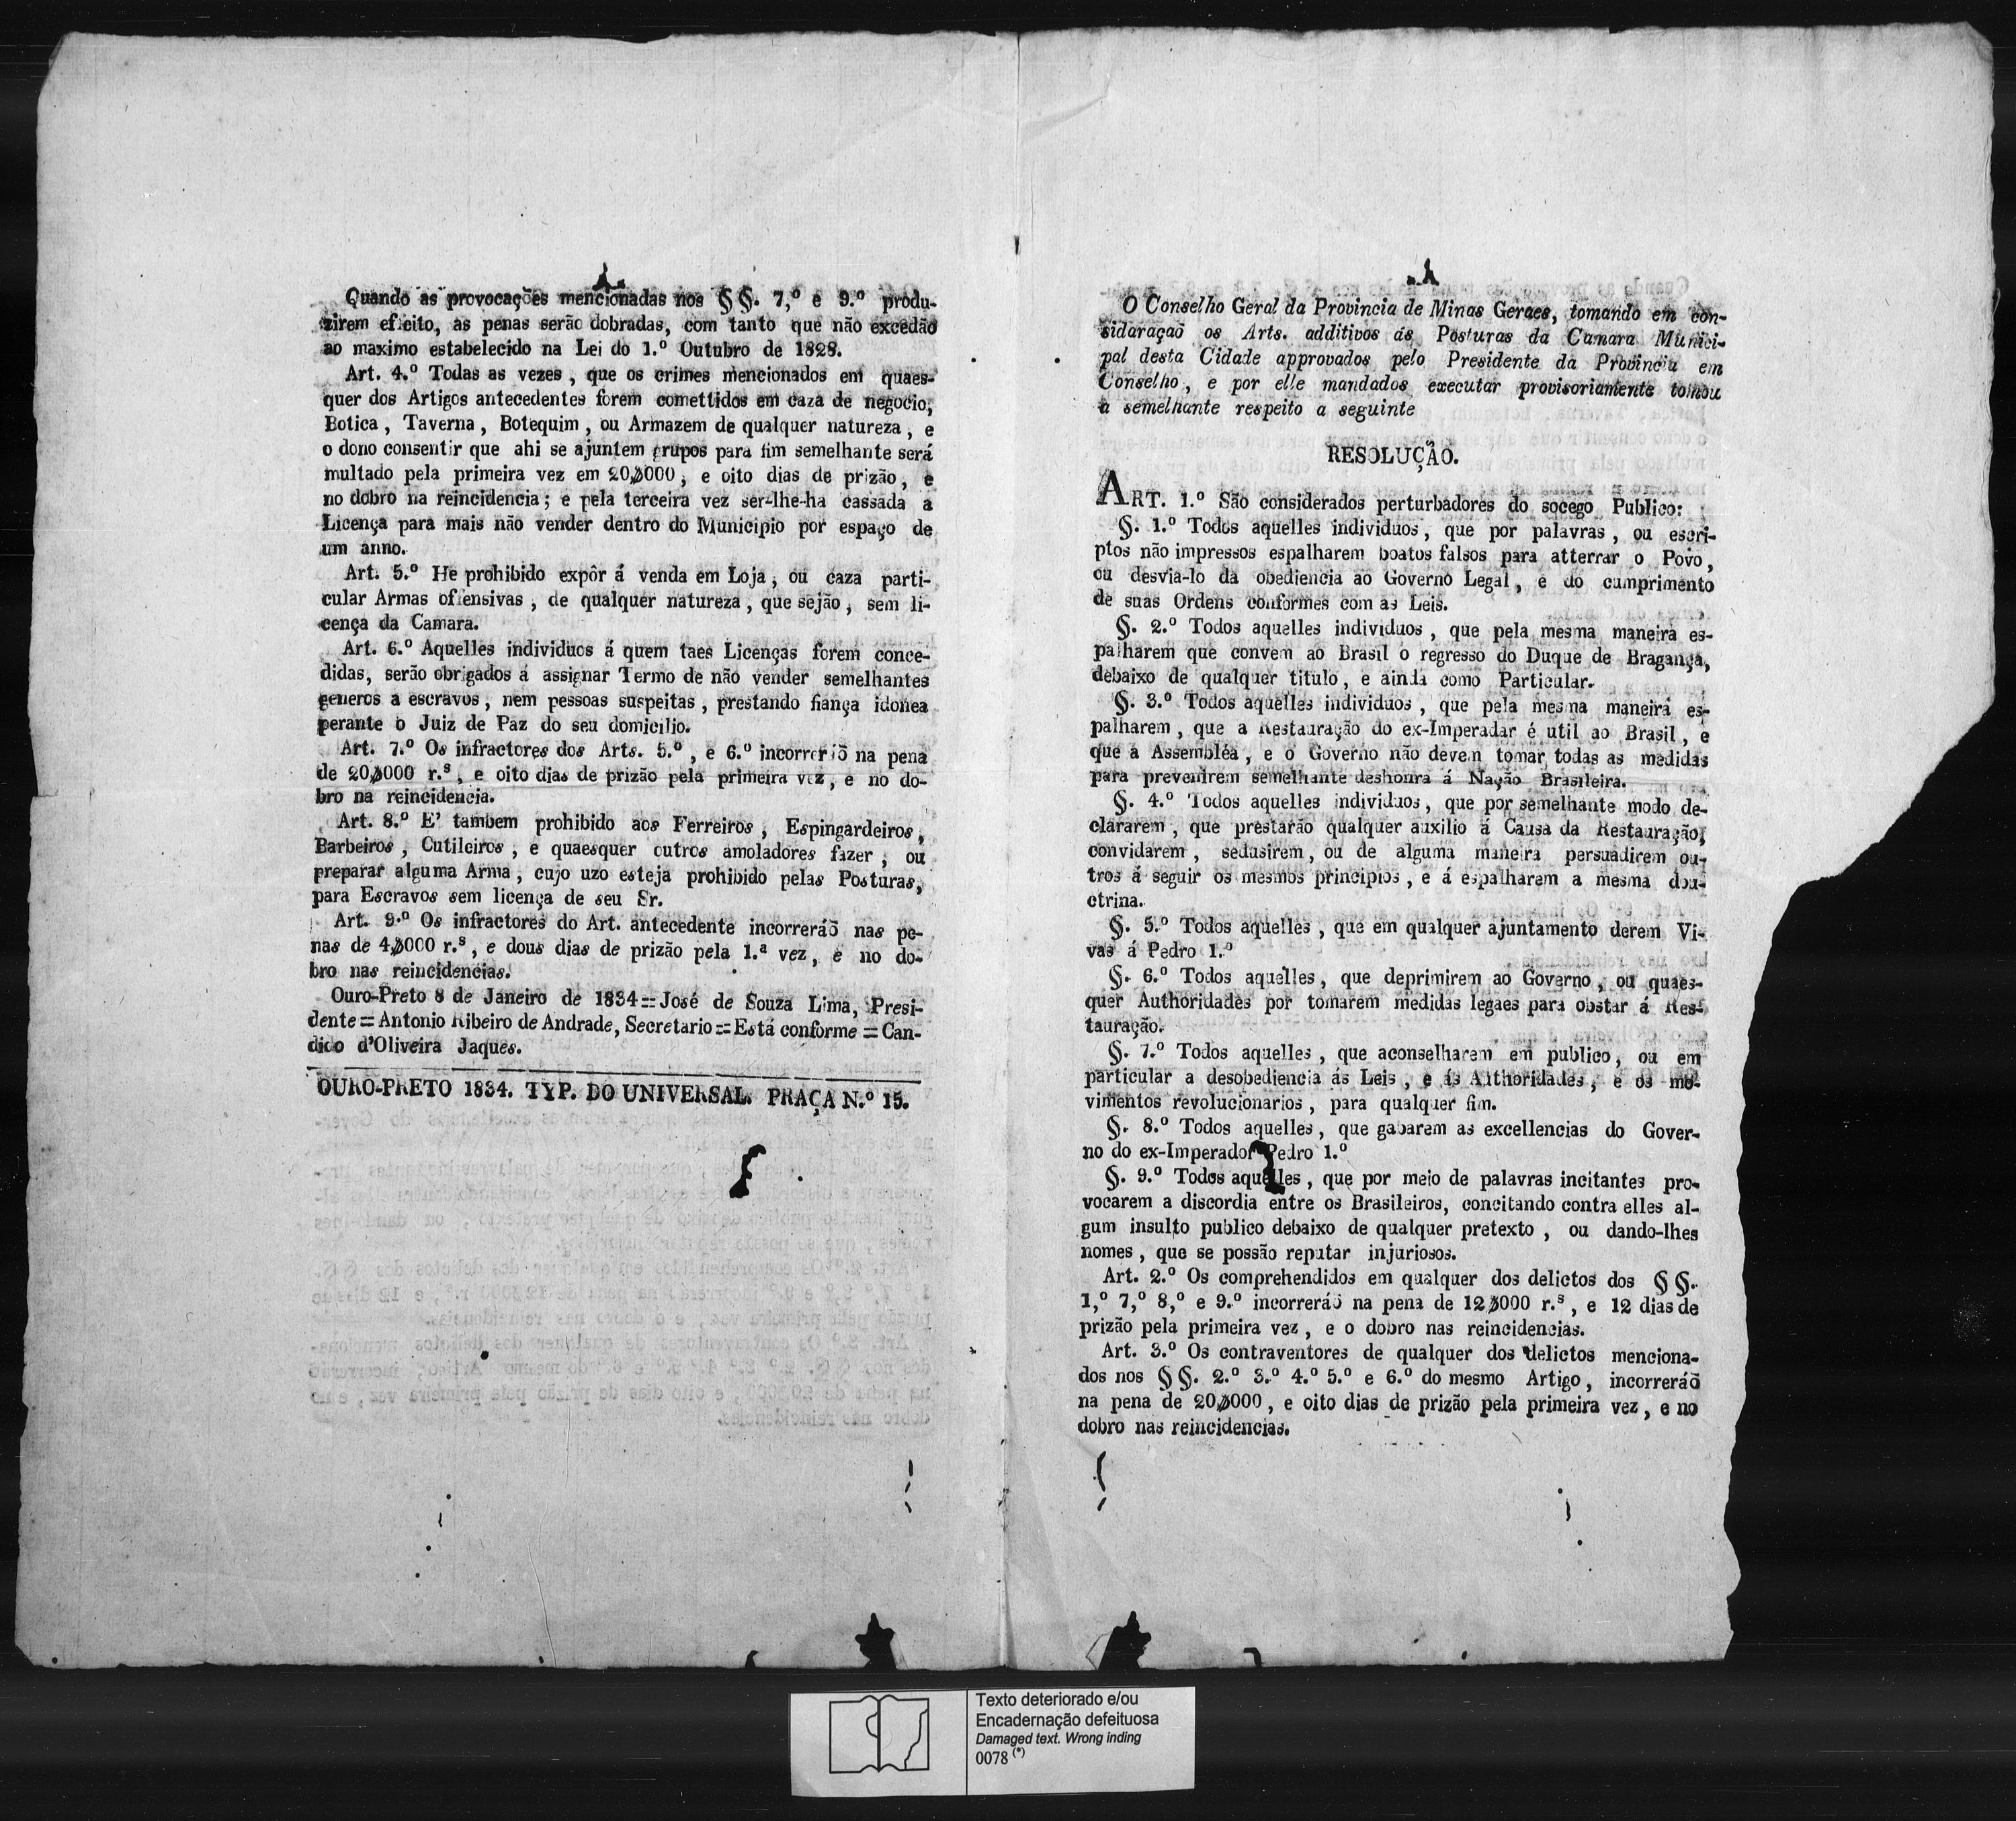 Quando as provocações mencionadas nos §§. 7,º e 9.º produ-
zirem efeito, as penas serão dobradas, com tanto que não excedão
ao maximo estabelecido na Lei do 1.º Outubro de 1828.
Art. 4.º Todas as vezes, que os crimes mencionados em quaes-
quer dos Artigos antecedentes forem comettidos em caza de negocio,
Botica, Taverna, Botequim, ou Armazem de qualquer natureza, e
o dono consentir que ahi se ajuntem grupos para fim semelhante será
multado pela primeira vez em 20$000, e oito dias de prizão, e
no dobro na reincidencia; e pela terceira vez ser-lhe-ha cassada a
Licença para mais não vender dentro do Municipio por espaço de
um anno.
Art. 5.º He prohibido expôr á venda em Loja, ou caza parti-
cular Armas offensivas, de qualquer natureza, que sejão, sem li-
cença da Camara.
Art. 6.º Aquelles individuos á quem taes Licenças forem conce-
didas, serão obrigados á assignar Termo de não vender semelhantes
generos a escravos, nem pessoas suspeitas, prestando fiança idonea
perante o Juiz de Paz do seu domicilio.
Art. 7.º Os infractores dos Arts. 5.º, e 6.º incorreráõ na pena
de 20$000 r.s, e oito dias de prizão pela primeira vez, e no do-
bro na reincidencia.
Art. 8.º E' tambem prohibido aos Ferreiros, Espingardeiros,
Barbeiros, Cutileiros, e quaesquer outros amoladores fazer, ou
preparar alguma Arma, cujo uzo esteja prohibido pelas Posturas,
para Escravos sem licença de seu Sr.
Art. 9.º Os infractores do Art. antecedente incorreráõ nas pe-
nas de 4$000 r.s, e dous dias de prizão pela 1.ª vez, e no do-
bro nas reincidencias.
Ouro-Preto 8 de Janeiro de 1834=José de Souza Lima, Presi-
dente=Antonio Ribeiro de Andrade, Secretario=Está conforme=Can-
dido d'Oliveira Jaques.
OURO-PRETO 1834. TYP. DO UNIVERSAL. PRAÇA N.º 15.
O Conselho Geral da Provincia de Minas Geraes, tomando em con-
sidaraçaõ os Arts. additivos ás Posturas da Camara Munici-
pal desta Cidade approvados pelo Presidente da Provincia em
Conselho, e por elle mandados executar provisoriamente tomou
a semelhante respeito a seguinte
RESOLUÇÃO.
ART. 1.º São considerados perturbadores do socego Publico:
§. 1.º Todos aquelles individuos, que por palavras, ou escri-
ptos não impressos espalharem boatos falsos para atterrar o Povo,
ou desvia-lo da obediencia ao Governo Legal, e do cumprimento
de suas Ordens conformes com as Leis.
§. 2.º Todos aquelles individuos, que pela mesma maneira es-
palharem que convem ao Brasil o regresso do Duque de Bragança,
debaixo de qualquer titulo, e ainda como Particular.
§. 3.º Todos aquelles individuos, que pela mesma maneira es-
palharem, que a Restauração do ex-Imperadar é util ao Brasil, e
que a Assembléa, e o Governo não devem tomar todas as medidas
para prevenirem semelhante deshonra á Nação Brasileira.
§. 4.º Todos aquelles individuos, que por semelhante modo de-
clararem, que prestarão qualquer auxilio á Causa da Restauração,
convidarem, sedusirem, ou de alguma maneira persuadirem ou-
tros á seguir os mesmos principios, e á espalharem a mesma dou-
ctrina.
§. 5.º Todos aquelles, que em qualquer ajuntamento derem Vi-
vas á Pedro 1.º
§. 6.º Todos aquelles, que deprimirem ao Governo, ou quaes-
quer Authoridades por tomarem medidas legaes para obstar á Res-
tauração.
§. 7.º Todos aquelles, que aconselharem em publico, ou em
particular a desobediencia ás Leis, e ás Authoridades, e os mo-
vimentos revolucionarios, para qualquer fim.
§. 8.º Todos aquelles, que gabarem as excellencias do Gover-
no do ex-Imperador Pedro 1.º
§. 9.º Todos aquelles, que por meio de palavras incitantes pro-
vocarem a discordia entre os Brasileiros, concitando contra elles al-
gum insulto publico debaixo de qualquer pretexto, ou dando-lhes
nomes, que se possão reputar injuriosos.
Art. 2.º Os comprehendidos em qualquer dos delictos dos §§.
1,º 7,º 8,º e 9.º incorreráõ na pena de 12$000 r.s, e 12 dias de
prizão pela primeira vez, e o dobro nas reincidencias.
Art. 3.º Os contraventores de qualquer dos delictos menciona-
dos nos §§. 2.º 3.º 4.º 5.º e 6.º do mesmo Artigo, incorreráõ
na pena de 20$000, e oito dias de prizão pela primeira vez, e no
dobro nas reincidencias.
Texto deteriorado e/ou
Encadernação defeituosa
Damaged text. Wrong inding
0078 (*)